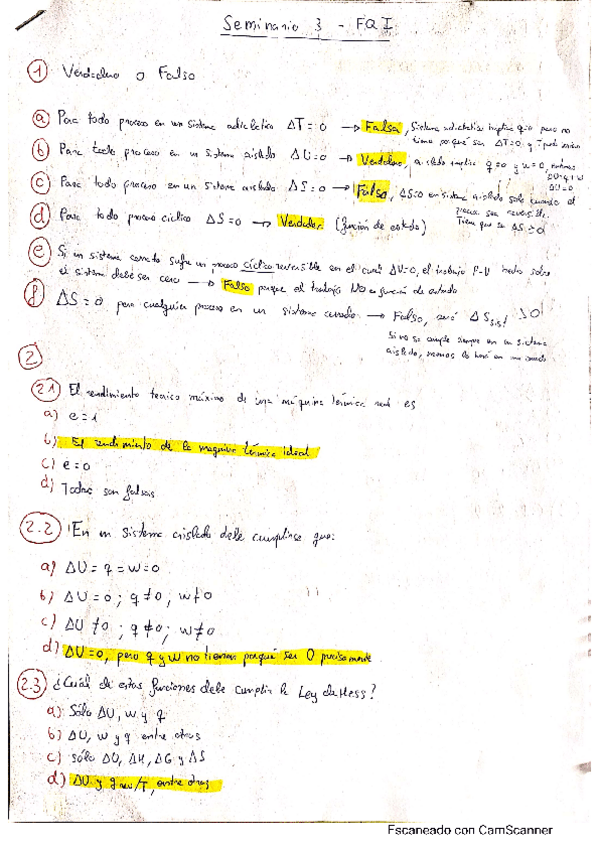 Seminario 3 - FQI
1 Verdadero o Falso
a Para todo proceso en un sistema adiabático ΔT=0 → Falsa, Sistema adiabático implica que pero no
tiene porque ser ΔT=0 y T puede variar
b Para todo proceso en un sistema aislado ΔU=0 → Verdadero, aislado implica q=0 y w=0, entonces
ΔU=q+w
ΔU=0
c Para todo proceso en un sistema aislado ΔS=0 → Falso, ΔS=0 en sistema aislado solo cuando el
proceso sea reversible.
Tiene que ser ΔS≥0
d Para todo proceso cíclico ΔS=0 → Verdadero (función de estado)
e Si un sistema cerrado sufre un proceso cíclico reversible en el cual ΔU=0, el trabajo P-V hecho sobre
el sistema debe ser cero → Falso porque el trabajo NO es función de estado
f ΔS=0 para cualquier proceso en un sistema cerrado → Falso, será ΔS sis ≥0
Si no se cumple siempre en un sistema
aislado, menos lo hará en uno cerrado
2
2.1 El rendimiento teórico máximo de una máquina térmica real es
a) e=1
b) El rendimiento de la maquina térmica ideal
c) e=0
d) Todas son falsas
2.2 En un sistema aislado debe cumplirse que:
a) ΔU=q=w=0
b) ΔU=0; q≠0; w≠0
c) ΔU≠0; q≠0; w≠0
d) ΔU=0, pero q y w no tienen porqué ser 0 precisamente
2.3 ¿Cuál de estas funciones debe cumplir la Ley de Hess?
a) Sólo ΔU, w y q
b) ΔU, w y q entre otras
c) sólo ΔU, ΔH, ΔG y ΔS
d) ΔU y q rev/T, entre otras
Escaneado con CamScanner